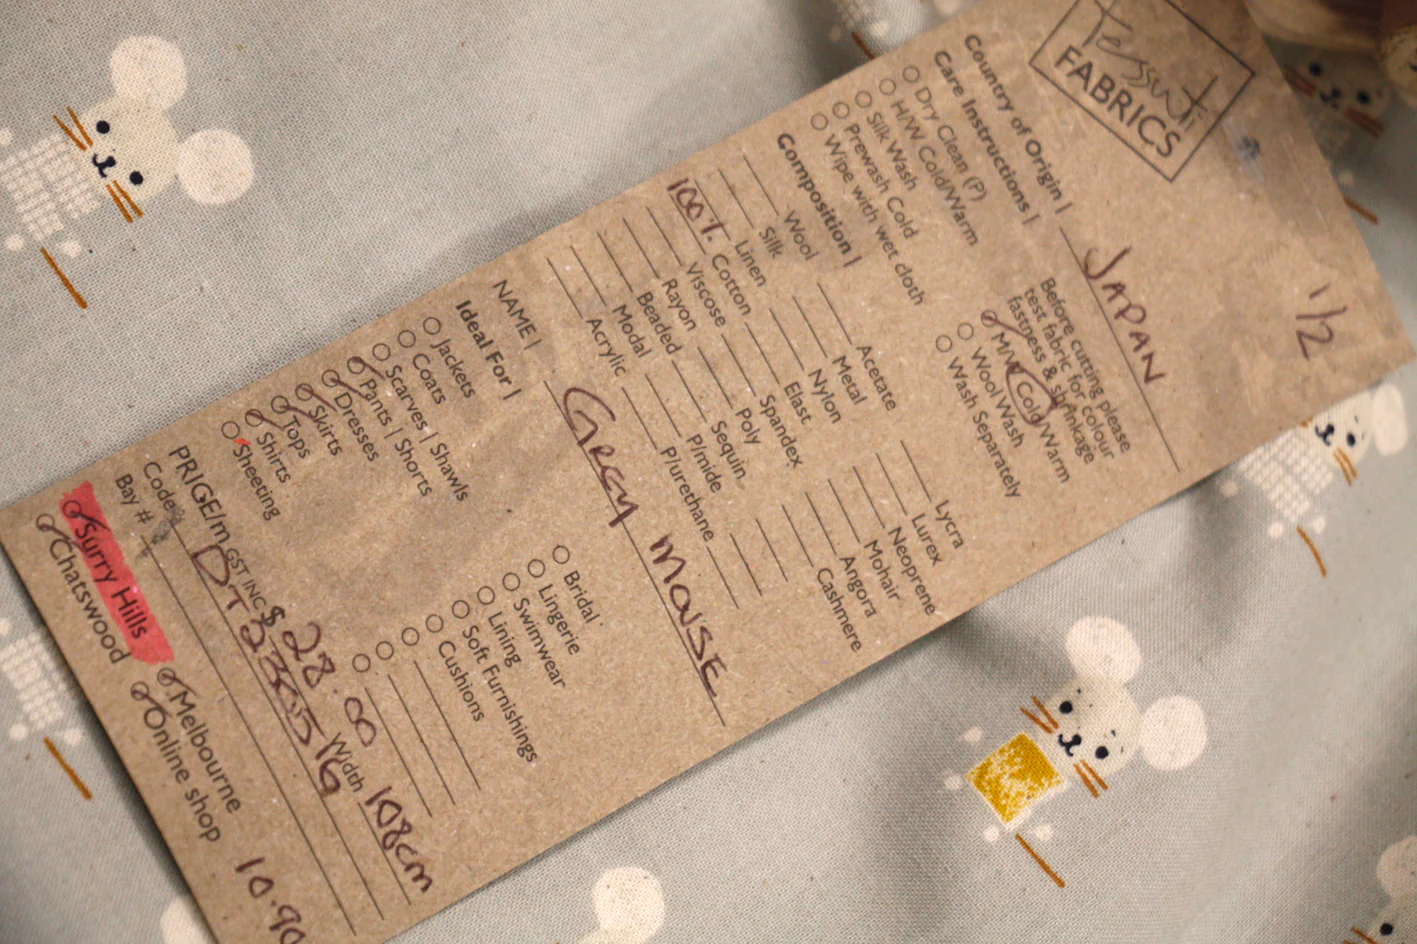 1/2
Tessuti
FABRICS
Country of Origin | JAPAN
Care Instructions |
Before cutting please
test fabric for colour
fastness & shrinkage
Dry Clean (P)
H/W Cold/Warm
Silk Wash
Prewash Cold
Wipe with wet cloth
M/W Cold/Warm
Wool Wash
Wash Separately
Composition |
Wool
Silk
Linen
100% Cotton
Viscose
Rayon
Beaded
Modal
Acrylic
Acetate
Metal
Nylon
Elast
Spandex
Poly
Sequin
P/mide
P/urethane
Lycra
Lurex
Neoprene
Mohair
Angora
Cashmere
NAME | GREY MOUSE
Ideal For |
Jackets
Coats
Scarves | Shawls
Pants | Shorts
Dresses
Skirts
Tops
Shirts
Sheeting
Bridal
Lingerie
Swimwear
Lining
Soft Furnishings
Cushions
PRICE/m GST INC $ 28.00 Width 108cm
Code
Bay #
Surry Hills
Chatswood
Melbourne
Online shop
10.90